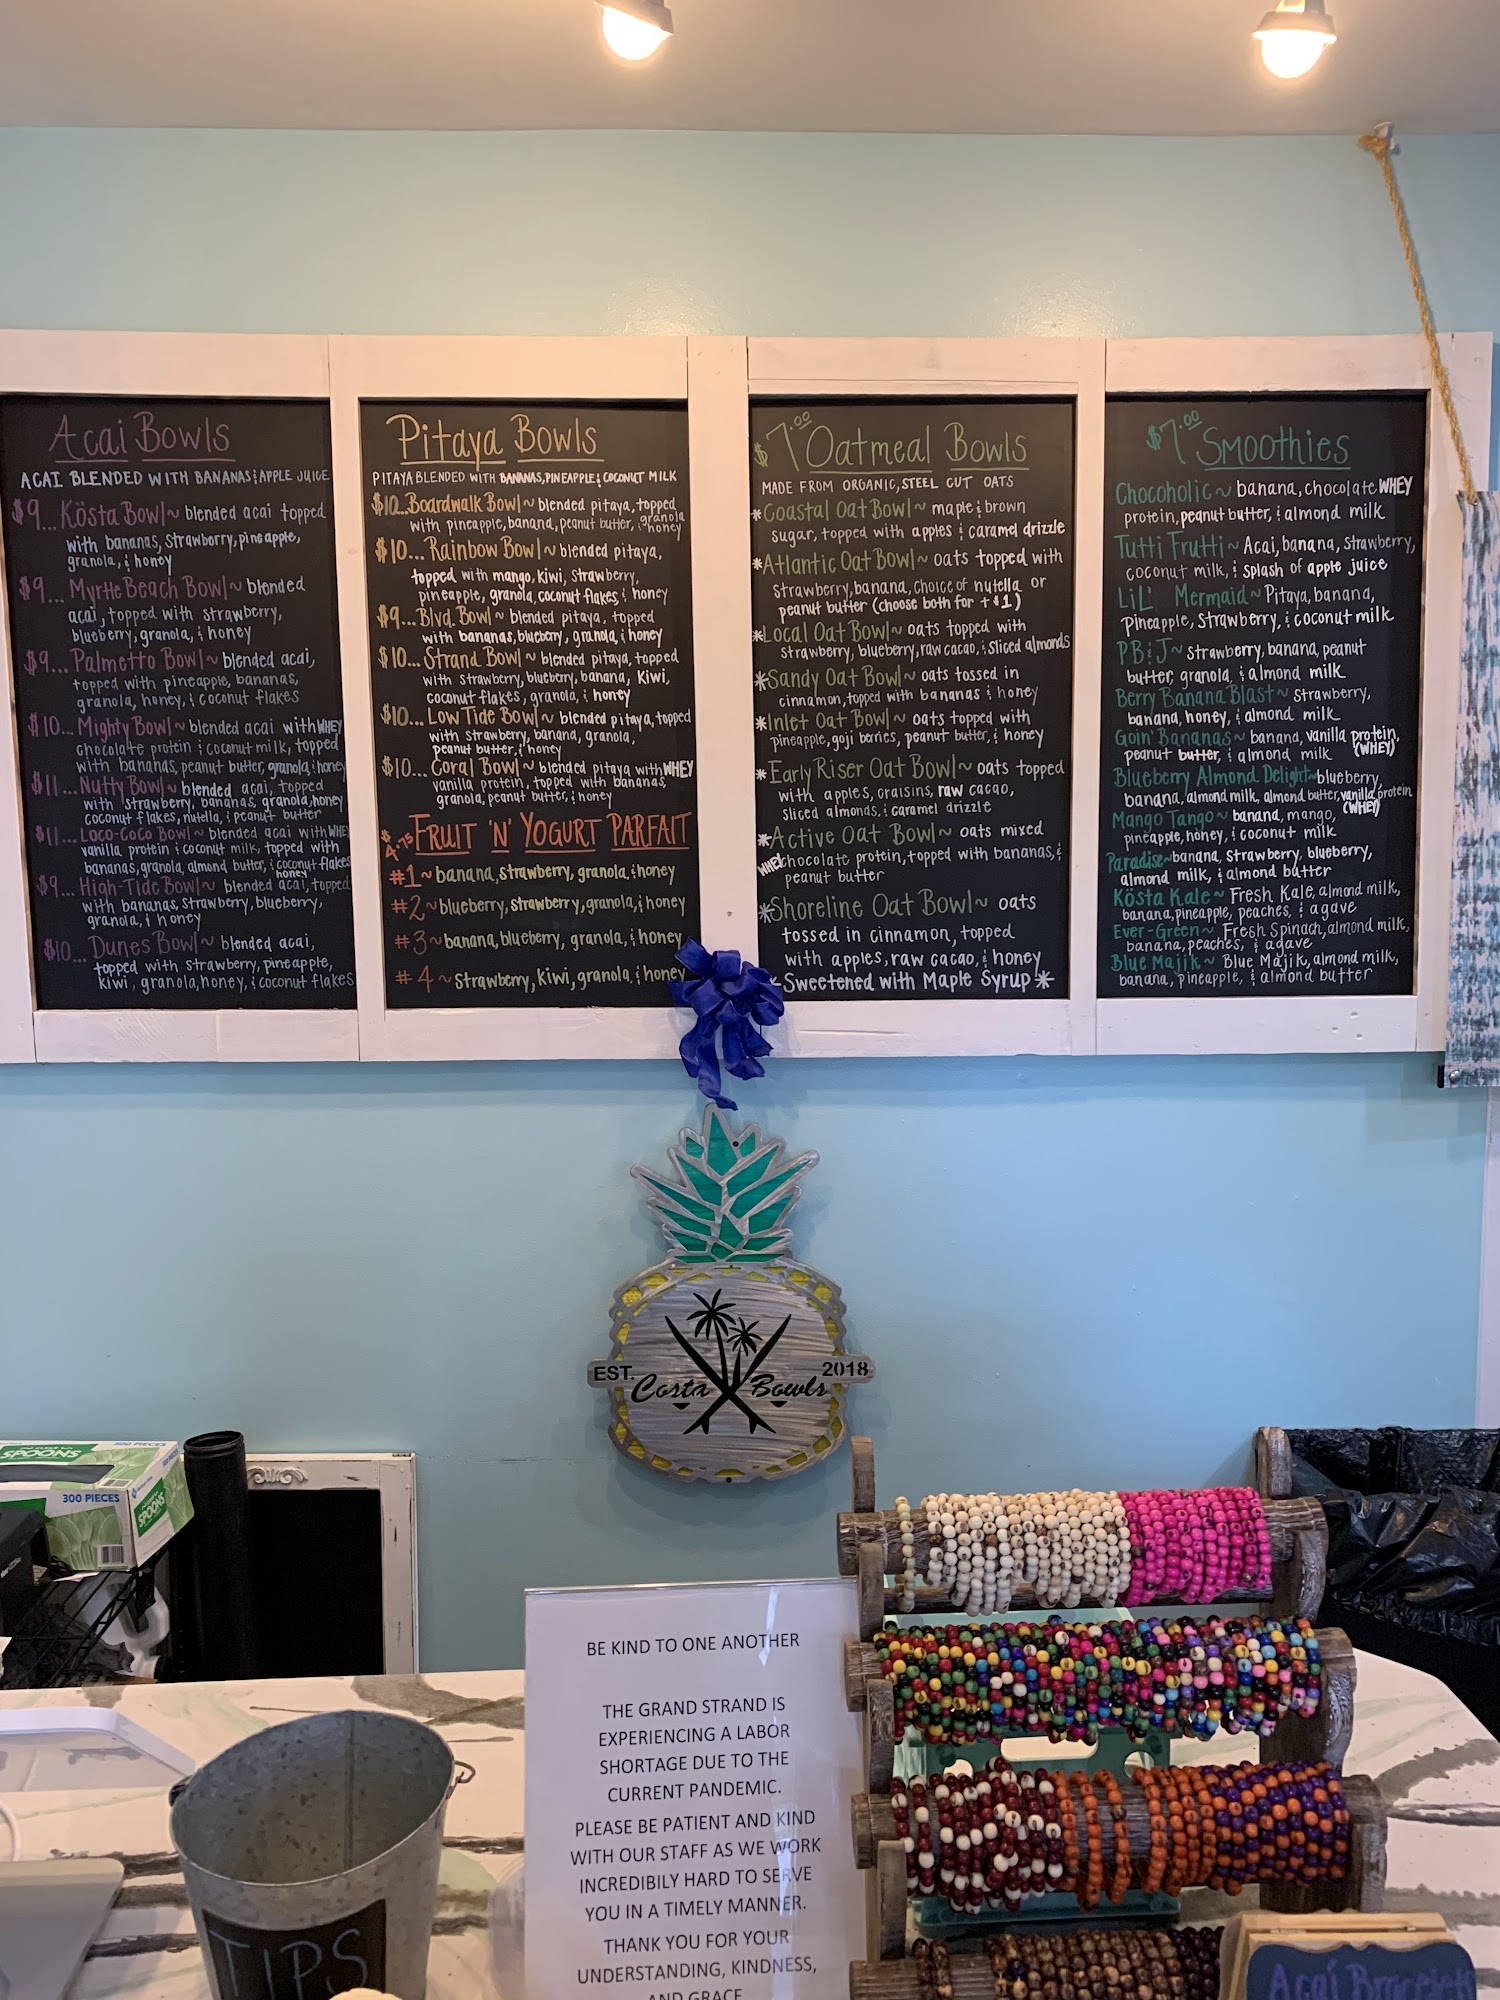 Acai Bowls
ACAI BLENDED WITH BANANAS & APPLE JUICE
$9... Kösta Bowl ~ blended acai topped
with bananas, strawberry, pineapple,
granola, & honey
$9... Myrtle Beach Bowl ~ blended
acai, topped with strawberry,
blueberry, granola, & honey
$9... Palmetto Bowl ~ blended acai,
topped with pineapple, bananas,
granola, honey, & coconut flakes
$10... Mighty Bowl ~ blended acai with WHEY
chocolate protein & coconut milk, topped
with bananas, peanut butter, granola, & honey
$11... Nutty Bowl ~ blended acai, topped
with strawberry, bananas, granola, honey
coconut flakes, nutella, & peanut butter
$11... Loco-Coco Bowl ~ blended acai with WHEY
vanilla protein & coconut milk, topped with
bananas, granola, almond butter, & coconut flakes
honey
$9... High-Tide Bowl ~ blended acai, topped
with bananas, strawberry, blueberry,
granola, & honey
$10... Dunes Bowl ~ blended acai,
topped with strawberry, pineapple,
kiwi, granola, honey, & coconut flakes
Pitaya Bowls
PITAYA BLENDED WITH BANANAS, PINEAPPLE & COCONUT MILK
$10... Boardwalk Bowl ~ blended pitaya, topped
with pineapple, banana, peanut butter, granola
& honey
$10... Rainbow Bowl ~ blended pitaya,
topped with mango, kiwi, strawberry,
pineapple, granola, coconut flakes, & honey
$9... Blvd. Bowl ~ blended pitaya, topped
with bananas, blueberry, granola, & honey
$10... Strand Bowl ~ blended pitaya, topped
with strawberry, blueberry, banana, kiwi,
coconut flakes, granola, & honey
$10... Low Tide Bowl ~ blended pitaya, topped
with strawberry, banana, granola,
peanut butter, & honey
$10... Coral Bowl ~ blended pitaya with WHEY
vanilla protein, topped with bananas,
granola, peanut butter, & honey
$4.75 FRUIT 'N' YOGURT PARFAIT
#1 ~ banana, strawberry, granola, & honey
#2 ~ blueberry, strawberry, granola, & honey
#3 ~ banana, blueberry, granola, & honey
#4 ~ strawberry, kiwi, granola, & honey
$7.00 Oatmeal Bowls
MADE FROM ORGANIC, STEEL CUT OATS
*Coastal Oat Bowl ~ maple & brown
sugar, topped with apples & caramel drizzle
*Atlantic Oat Bowl ~ oats topped with
strawberry, banana, choice of nutella or
peanut butter (choose both for +$1)
*Local Oat Bowl ~ oats topped with
strawberry, blueberry, raw cacao, & sliced almonds
*Sandy Oat Bowl ~ oats tossed in
cinnamon, topped with bananas & honey
*Inlet Oat Bowl ~ oats topped with
pineapple, goji berries, peanut butter, & honey
*Early Riser Oat Bowl ~ oats topped
with apples, craisins, raw cacao,
sliced almonds, & caramel drizzle
*Active Oat Bowl ~ oats mixed
WHEY chocolate protein, topped with bananas, &
peanut butter
*Shoreline Oat Bowl ~ oats
tossed in cinnamon, topped
with apples, raw cacao, & honey
*Sweetened with Maple Syrup*
$7.00 Smoothies
Chocoholic ~ banana, chocolate WHEY
protein, peanut butter, & almond milk
Tutti Frutti ~ Acai, banana, strawberry,
coconut milk, & splash of apple juice
LiL' Mermaid ~ Pitaya, banana,
pineapple, strawberry, & coconut milk
PB&J ~ strawberry, banana, peanut
butter, granola, & almond milk
Berry Banana Blast ~ strawberry,
banana, honey, & almond milk
Goin' Bananas ~ banana, vanilla protein,
peanut butter, & almond milk (WHEY)
Blueberry Almond Delight ~ blueberry,
banana, almond milk, almond butter, vanilla protein
(WHEY)
Mango Tango ~ banana, mango,
pineapple, honey, & coconut milk
Paradise ~ banana, strawberry, blueberry,
almond milk, & almond butter
Kösta Kale ~ Fresh Kale, almond milk,
banana, pineapple, peaches, & agave
Ever-Green ~ Fresh Spinach, almond milk,
banana, peaches, & agave
Blue Majik ~ Blue Majik, almond milk,
banana, pineapple, & almond butter
EST. 2018
Costa Bowls
300 PIECES
SPOONS
300 PIECES
SPOONS
BE KIND TO ONE ANOTHER
THE GRAND STRAND IS
EXPERIENCING A LABOR
SHORTAGE DUE TO THE
CURRENT PANDEMIC.
PLEASE BE PATIENT AND KIND
WITH OUR STAFF AS WE WORK
INCREDIBILY HARD TO SERVE
YOU IN A TIMELY MANNER.
THANK YOU FOR YOUR
UNDERSTANDING, KINDNESS,
AND GRACE
TIPS
Acaí Bracelets